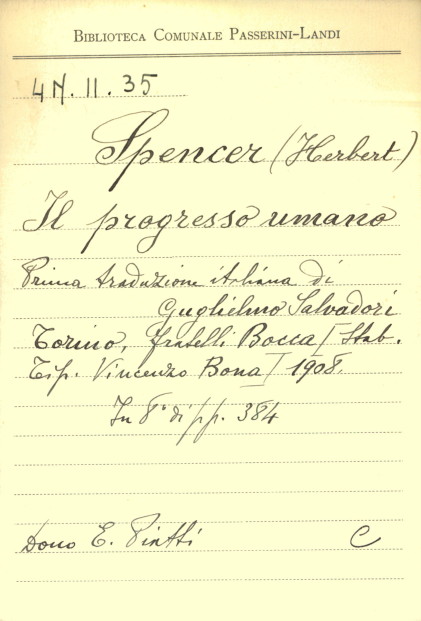 BIBLIOTECA COMUNALE PASSERINI-LANDI
4N. II. 35
Spencer (Herbert)
Il progresso umano
Prima traduzione italiana di
Guglielmo Salvadori
Torino, Fratelli Bocca / Stab.
Tip. Vincenzo Bona / 1908.
In 8° di pp. 384
Dono E. Piatti C